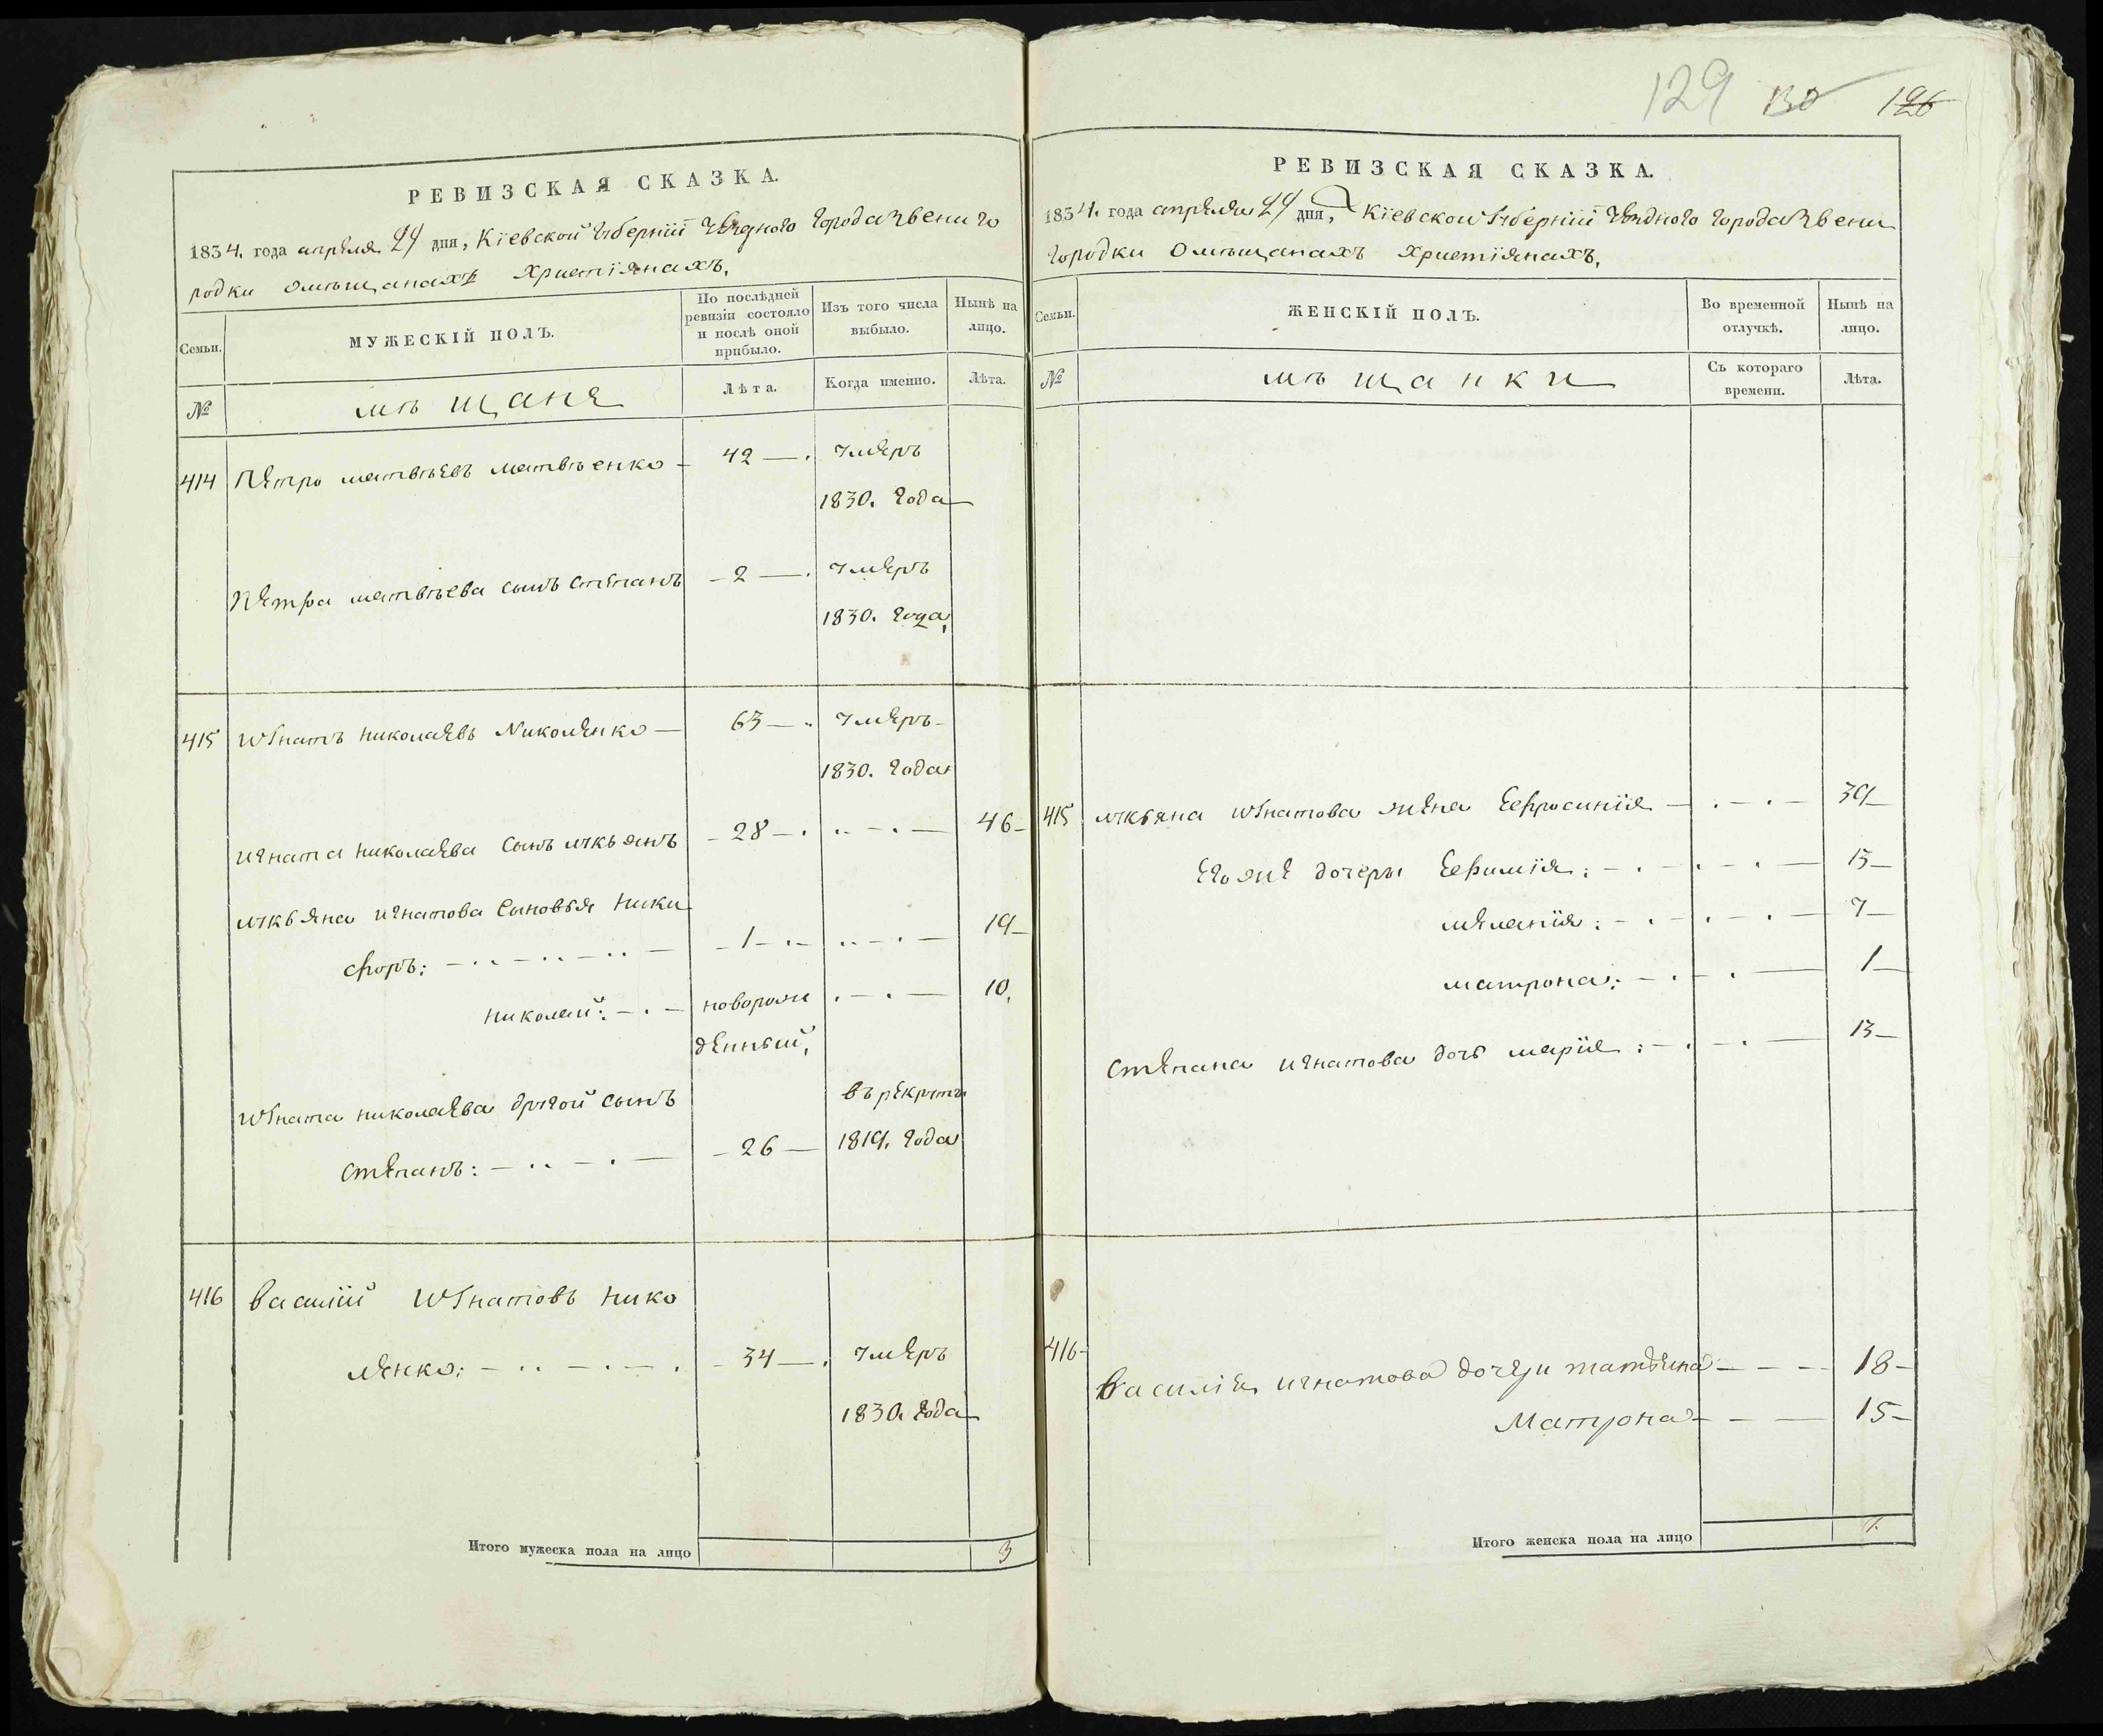 129 130 126
РЕВИЗСКАЯ СКАЗКА.
1834. года апреля 24 дня, Кіевской Губерніи Уезднаго Города Звениго
родки Омѣщанахъ Христіянахъ.
Семьи. МУЖЕСКІЙ ПОЛЪ. По послѣдней ревизіи состояло и послѣ оной прибыло. Изъ того числа выбыло. Нынѣ на лицо.
№ мѣщане Лѣта. Когда именно. Лѣта.
414 Петро матвѣевъ матвѣенко 42 умеръ
1830. Года
Петра матвѣева сынъ степанъ 2 умеръ
1830. Года
415 Игнатъ николаевъ Николенко 63 умеръ
1830. Года
игната николаева сынъ лукьянъ 28 46
лукьяна игнатова сыновья ники
форъ: 1 19
николай: новорож 10.
денный,
Игната николаева другой сынъ въ рекруты
степанъ: 26 1819. Года
416 василій Игнатовъ нико
ленко: 34 умеръ
1830. Года
Итого мужеска пола на лицо 3
РЕВИЗСКАЯ СКАЗКА.
1834. года апреля 24 дня, Кіевской Губерніи Уезднаго Города Звени
городки Омѣщанахъ Христіянахъ.
Семьи. ЖЕНСКІЙ ПОЛЪ. Во временной отлучкѣ. Нынѣ на лицо.
№ мѣщанки Съ котораго времени. Лѣта.
415 лукьяна Игнатова жена Ефросинія 39
Его же дочеры Ефимія: 13
меланія: 7
матрона: 1
степана игнатова дочь марія: 13
416 василія игнатова дочери татьяна 18
Матрона 15
Итого женска пола на лицо 7.